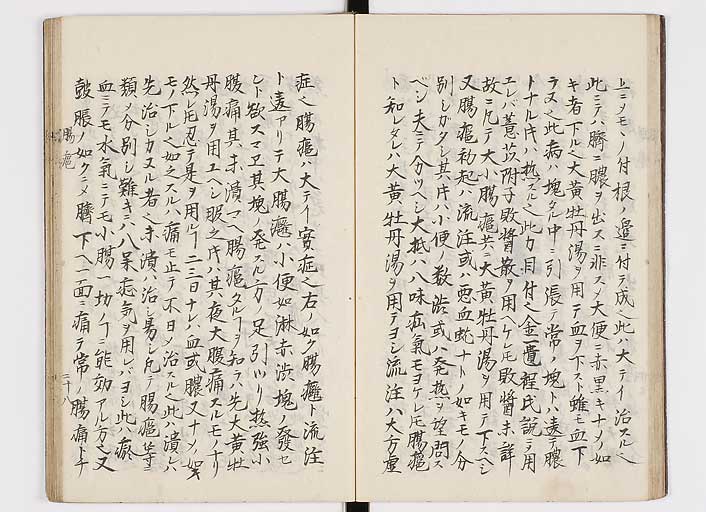 上ニソモヽノ付根ノ邉ニ付テ成之此ハ大テイ治スル之
此ニテハ臍ニ膿ヲ出スニ非スメ大便ニ赤黒キナソノ如
キ者下ル之大黄牡丹湯ヲ用テ血ヲ下スト雖モ血下
ラヌ之此病ハ塊タル中ニ引張テ常ノ塊トハ遠テ膿
トナル片ハ熱スル之此カ目付之金匱程氏説ヲ用
エレバ薏苡附子敗醤散ヲ用ヘケレ𪜈敗醤未詳
故ニ凡テ大小腸癰共ニ大黄牡丹湯ヲ用テ下スヘシ
又腸癰初起ハ流注或ハ悪血蛇ナトノ如キモノ分
別シガタシ其片ハ小便ノ数渋或ハ発熱ヲ望問ス
ベシ夫ニテ分ツヘシ大抵ハ八味疝氣モヨケレ𪜈腸癰
ト知レタレハ大黄牡丹湯ヲ用テヨシ流注ハ大方虚
症之腸癰ハ大テイ實症之右ノ如ク腸癰ト流注
ト遠アリテ大腸癰ハ小便如淋赤渋塊ノ發セ
ント欲スマヱ其塊ノ発スル方ノ足引ツリ熱強小
腹痛其未潰マヘ腸癰タルヿヲ知ラハ先大黄牡
丹湯ヲ用ユヘシ服之片ハ其夜大腹痛スルモノナリ
然レ𪜈忍テ是ヲ用ルヿ二三日ナレハ血或膿又ナソノ如キ
モノ下ル之如之スルハ痛モ止テ不日メ治スル之此ハ潰レハ
先治シカヌル者之未潰ハ治シ易シ凡テ腸癰等ニ
類メ分別シ難キニハ八味疝氣ヲ用レバヨシ此ハ瘀
血ニテモ水氣ニテモ小腸一切ノヿニ能効アル方之又
鼓脹ノ如クニメ臍下ヘ一面ニ痛テ常ノ腸痛トチ
腸癰
二十八